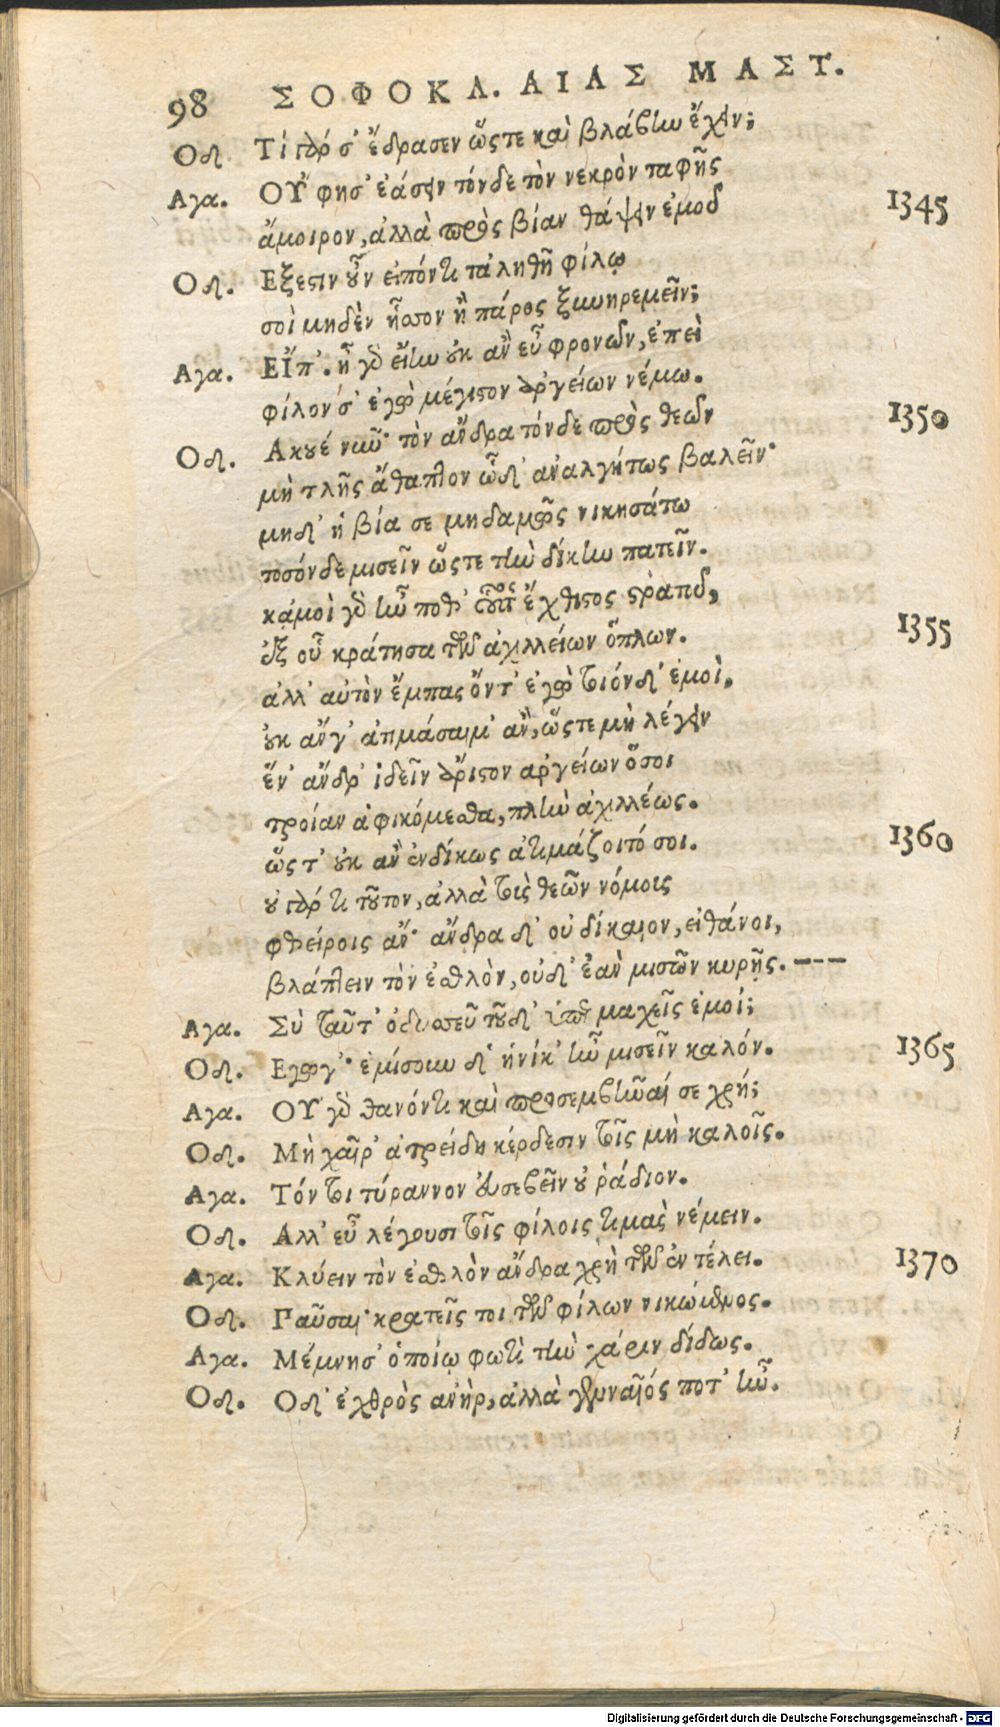 98 ΣΟΦΟΚΛ. ΑΙΑΣ ΜΑΣΤ.
Οδ. Τί γάρ σ' ἔδρασεν ὥςτε καὶ βλάβην ἔχειν;
Αγα. ΟΥ̓ φησ' ἐάσειν τόνδε τὸν νεκρὸν ταφῆς
ἄμοιρον, ἀλλὰ πρὸς βίαν θάψειν ἐμοῦ 1345
Οδ. Εξεστιν οὖν εἰπόντι τἀληθῆ φίλῳ
σοὶ μηδὲν ἧσσον ἢ πάρος ξυνηρεμεῖν;
Αγα. ΕΙ῎π'. ἦ γὰρ εἴην οὐκ ἂν εὖ φρονῶν, ἐπεὶ
φίλον σ' ἐγὼ μέγιστον ἀργείων νέμω.
Οδ. Ακουέ νυν· τὸν ἄνδρα τόνδε πρὸς θεῶν 1350
μὴ τλῇς ἄθαπτον ὧδ' ἀναλγήτως βαλεῖν·
μηδ' ἡ βία σε μηδαμῶς νικησάτω
τοσόνδε μισεῖν ὥςτε τὴν δίκην πατεῖν.
κᾀμοὶ γὰρ ἦν ποθ' οὗτος ἔχθιστος στρατοῦ,
ἐξ οὗ κράτησα τῶν ἀχιλλείων ὅπλων. 1355
ἀλλ' αὐτὸν ἔμπας ὄντ' ἐγὼ τοιόνδ' ἐμοὶ,
οὐκ ἄν γ' ἀτιμάσαιμ' ἂν, ὥςτε μὴ λέγειν
ἕν' ἄνδρ' ἰδεῖν ἄριστον ἀργείων ὅσοι
τροίαν ἀφικόμεσθα, πλὴν ἀχιλλέως.
ὥς τ' οὐκ ἂν ἐνδίκως ἀτιμάζοιτό σοι. 1360
οὐ γάρ τι τοῦτον, ἀλλὰ τοὺς θεῶν νόμους
φθείροις ἄν· ἄνδρα δ' οὐ δίκαιον, εἰ θάνοι,
βλάπτειν τὸν ἐσθλὸν, οὐδ' ἐὰν μισῶν κυρῇς. ---
Αγα. Σὺ ταῦτ' ὀδυσσεῦ τοῦδ' ὑπερμαχεῖς ἐμοί;
Οδ. Εγωγ'· ἐμίσουν δ' ἡνίκ' ἦν μισεῖν καλόν. 1365
Αγα. ΟΥ̓ γὰρ θανόντι καὶ προσεμβῆναί σε χρή;
Οδ. Μὴ χαῖρ' ἀτρείδη κέρδεσιν τοῖς μὴ καλοῖς.
Αγα. Τόν τοι τύραννον εὐσεβεῖν οὐ ῥάδιον.
Οδ. Αλλ' εὖ λέγουσι τοῖς φίλοις τιμὰς νέμειν.
Αγα. Κλύειν τὸν ἐσθλὸν ἄνδρα χρὴ τῶν ἐν τέλει. 1370
Οδ. Παῦσαι· κρατεῖς τοι τῶν φίλων νικώμενος.
Αγα. Μέμνησ' ὁποίῳ φωτὶ τὴν χάριν δίδως.
Οδ. Οδ' ἐχθρὸς ἀνὴρ, ἀλλὰ γενναῖός ποτ' ἦν.
Digitalisierung gefördert durch die Deutsche Forschungsgemeinschaft - DFG